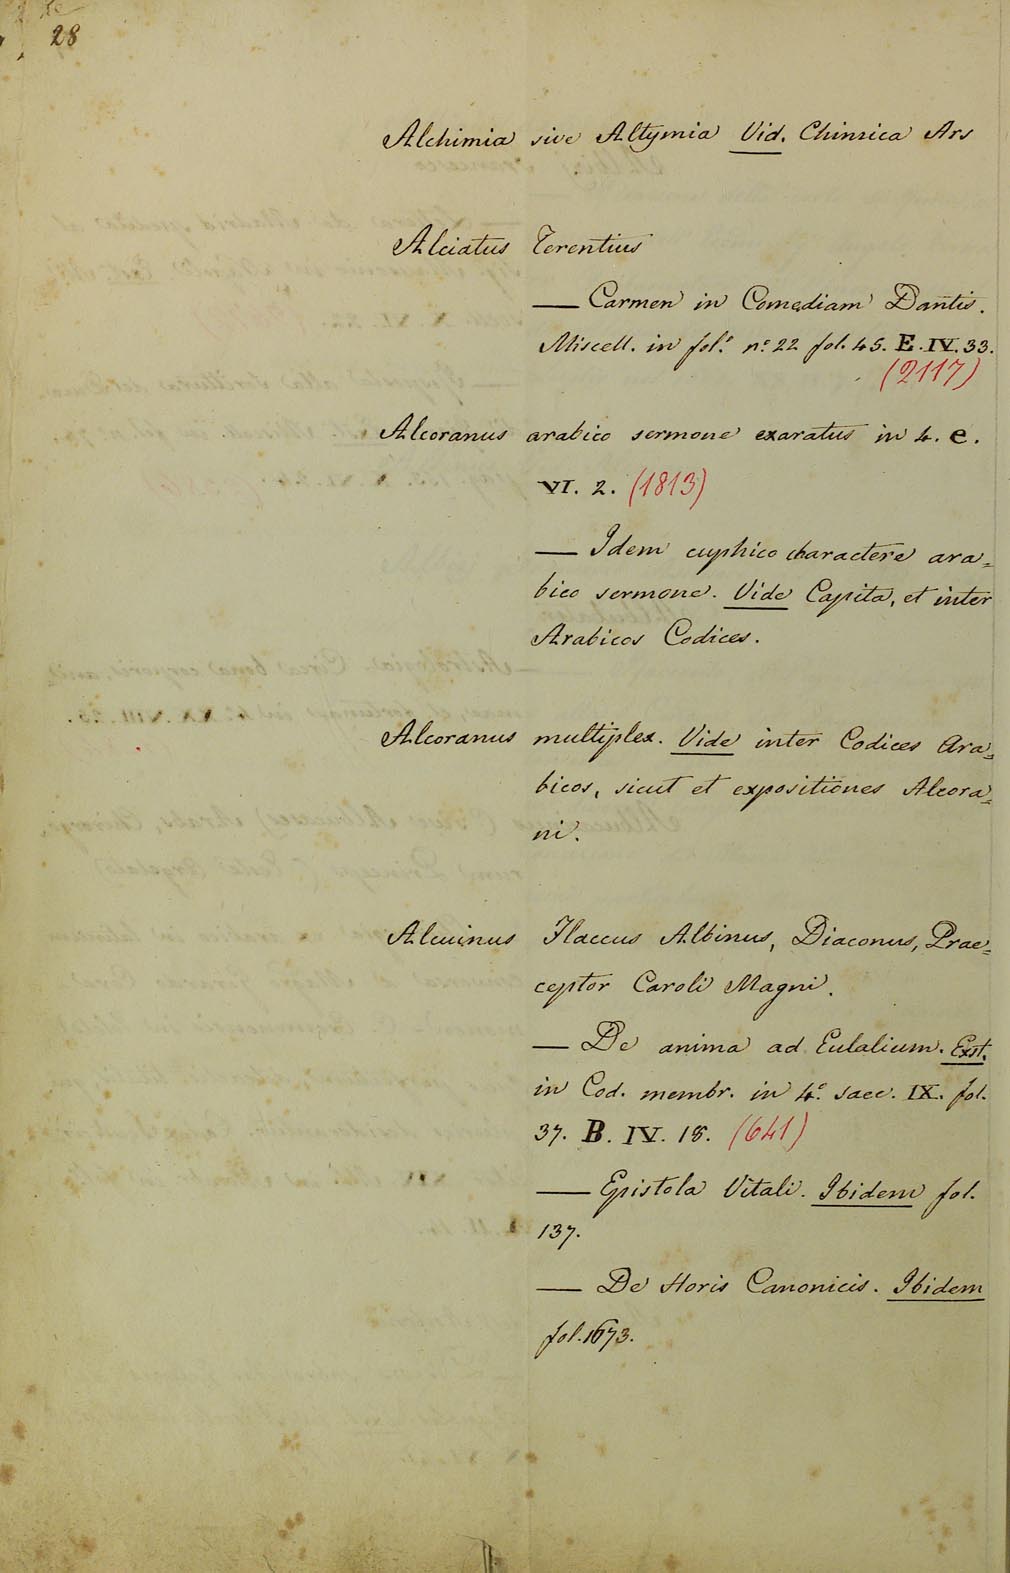 28
Alchimia sive Altymia Vid. Chimica Ars
Alciatus Terentius
— Carmen in Comediam Dantis.
Miscell. in fol.º nº 22 fol. 45. E. IV. 33.
(2117)
Alcoranus arabico sermone exaratus in 4. e.
VI. 2. (1813)
— Idem cuphico charactere ara=
bico sermone. Vide Capita, et inter
Arabicos Codices.
Alcoranus multiplex. Vide inter Codices Ara=
bicos, sicut et expositiones Alcora=
ni.
Alcuinus Flaccus Albinus, Diaconus, Prae=
ceptor Caroli Magni.
— De anima ad Eulalium. Exst.
in Cod. membr. in 4º saec. IX. fol.
37. B. IV. 18. (641)
— Epistola Vitali. Ibidem fol.
137.
— De Horis Canonicis. Ibidem